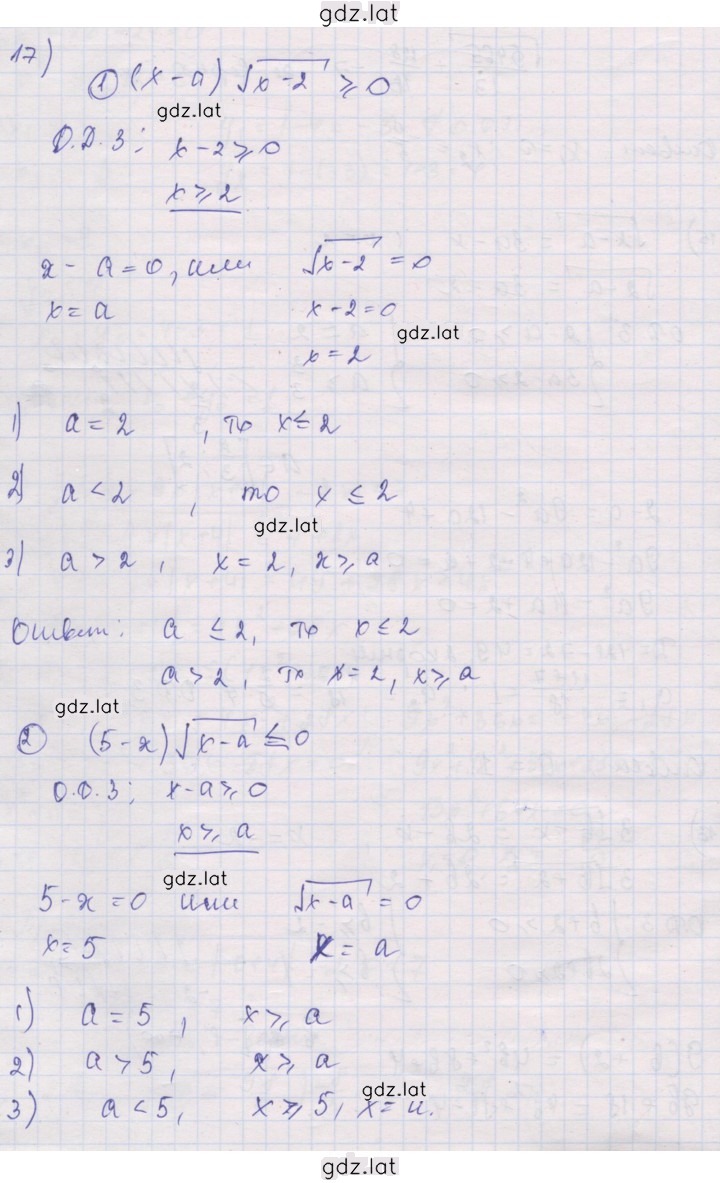 gdz.lat
17)
① (x-a)√(x-2) ⩾ 0
gdz.lat
О.Д.З: x-2⩾0
x⩾2
x-a=0, или √(x-2) = 0
x=a x-2=0
gdz.lat
x=2
1) a=2, то x≤2
2) a<2, то x≤2
gdz.lat
3) a>2, x=2, x⩾a
Ответ: a≤2, то x≤2
a>2, то x=2, x⩾a
gdz.lat
② (5-x)√(x-a) ≤ 0
О.Д.З; x-a⩾0
x⩾a
gdz.lat
5-x=0 или √(x-a) = 0
x=5 x=a
1) a=5, x⩾a
2) a>5, x⩾a
gdz.lat
3) a<5, x⩾5, x=a.
gdz.lat